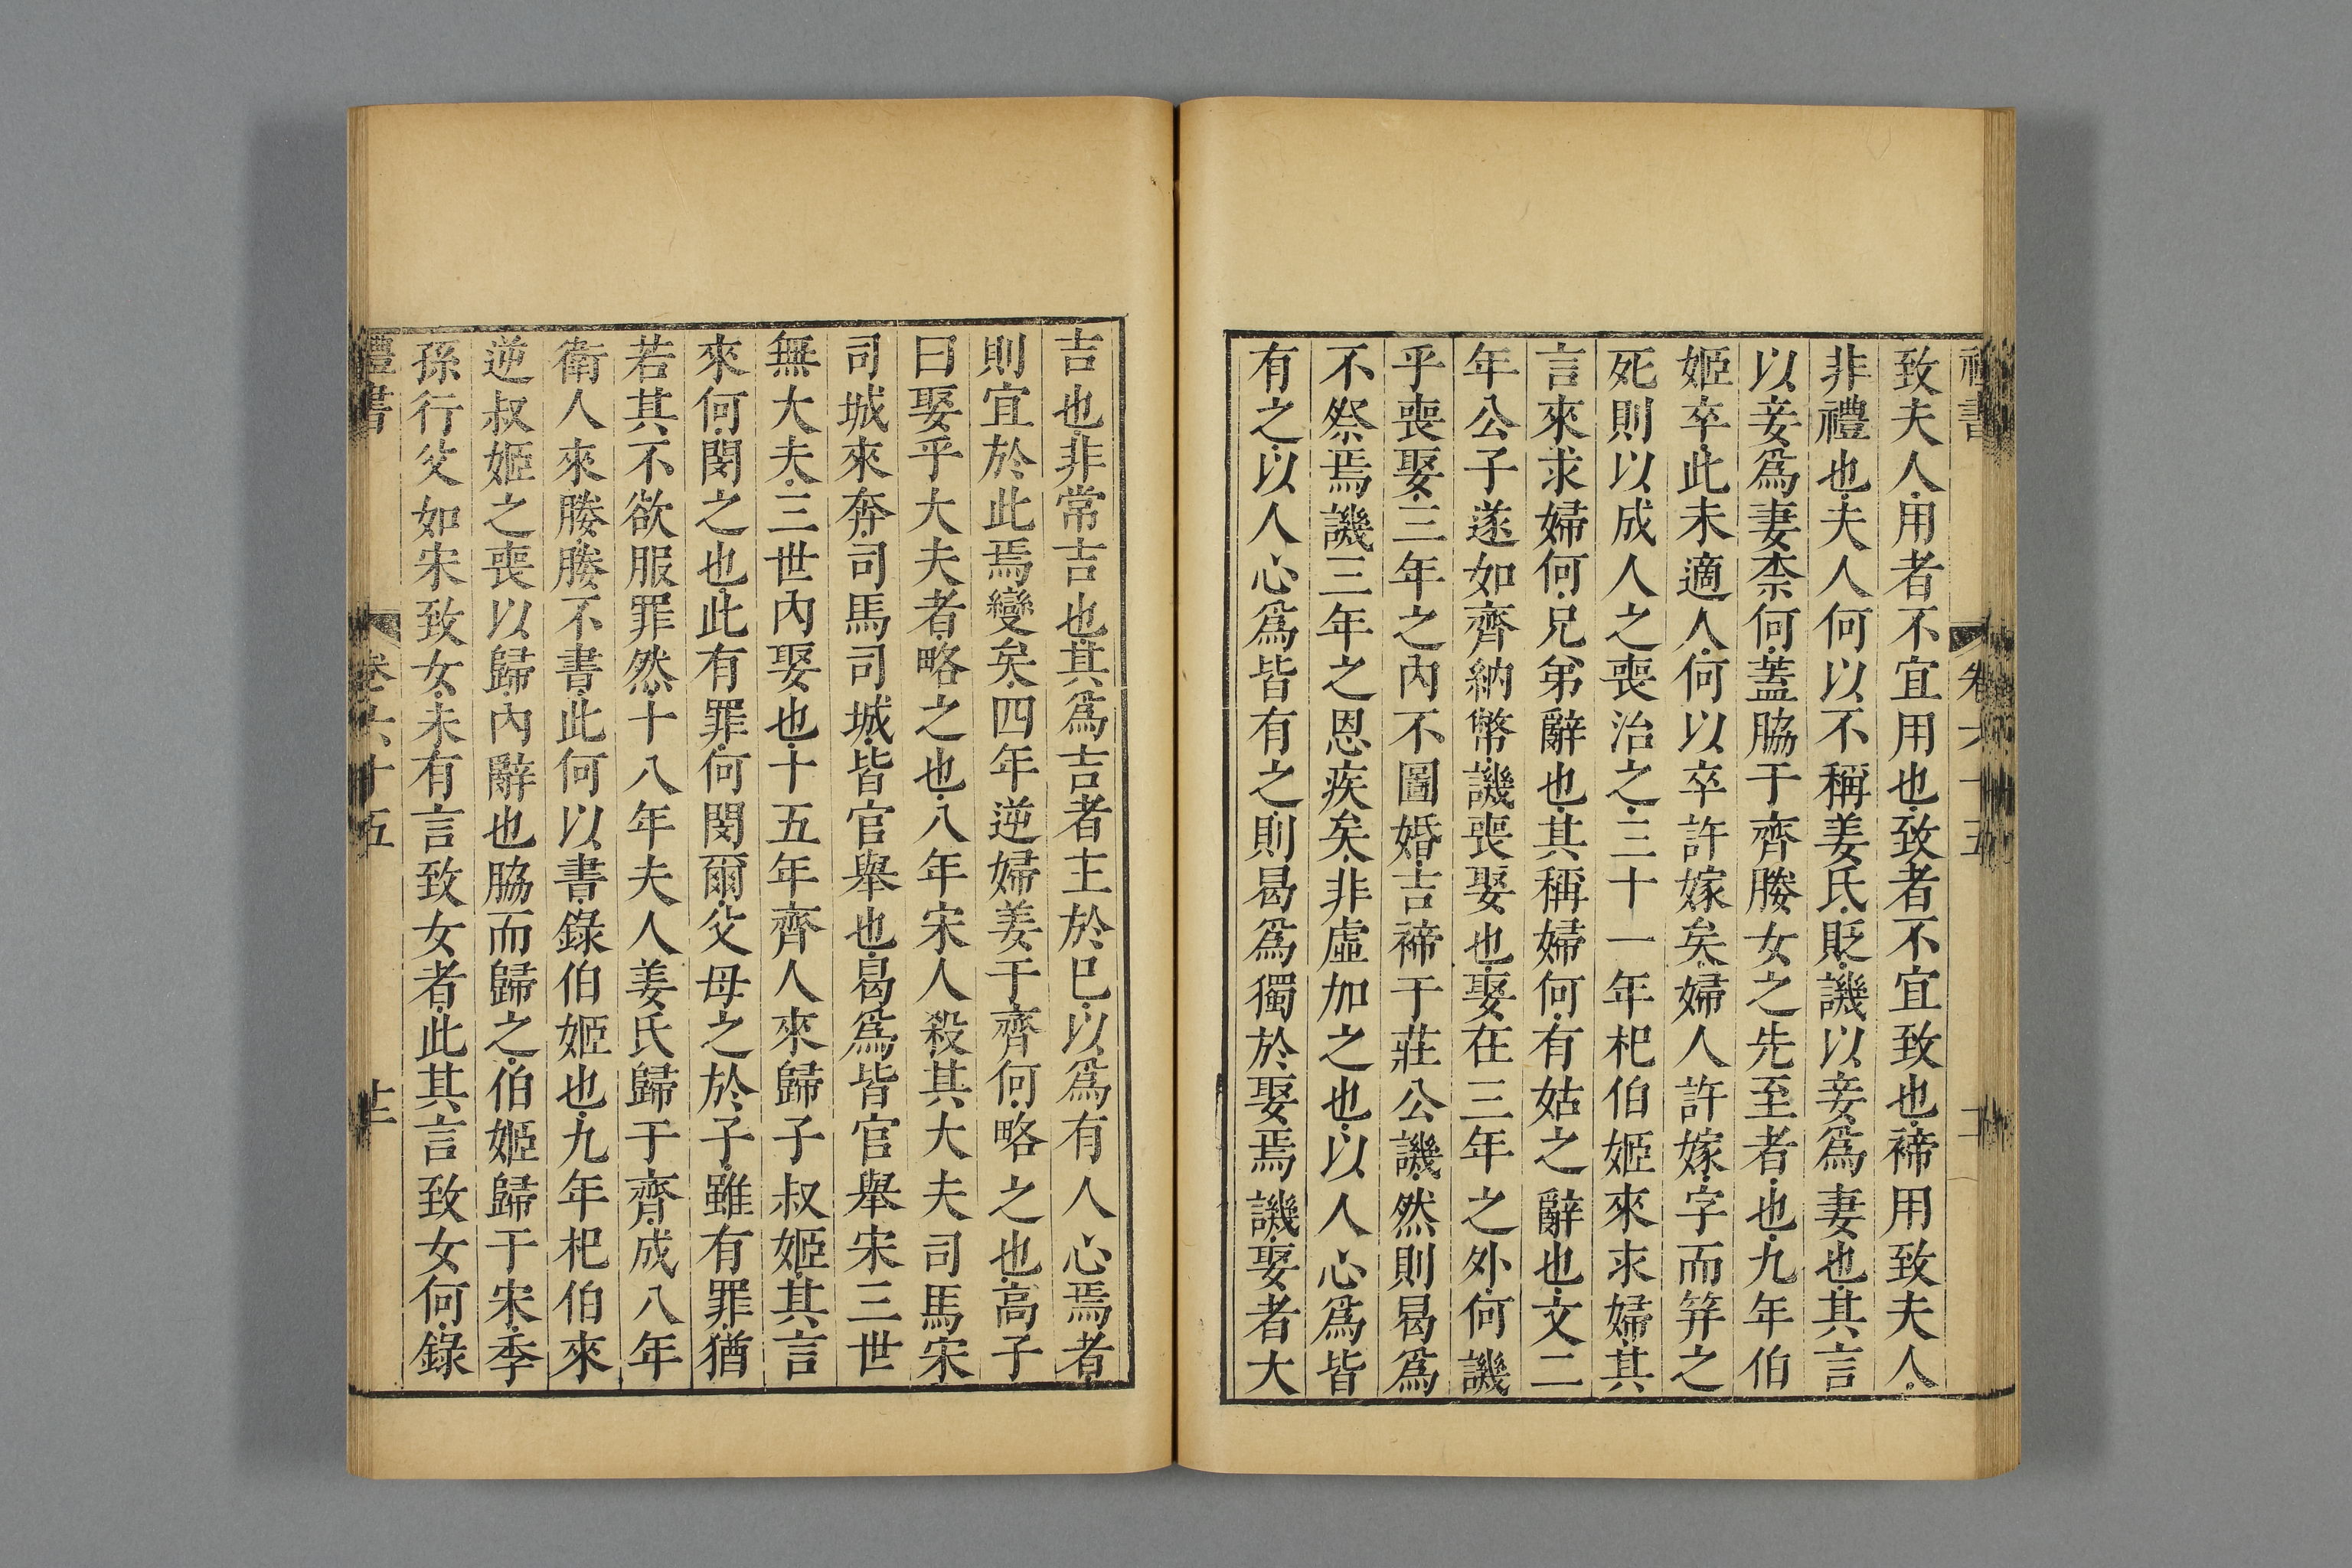 致夫人用者不宜用也致者不宜致也禘用致夫人
非禮也夫人何以不稱姜氏貶譏以妾爲妻也其言
以妾爲妻柰何蓋脇于齊媵女之先至者也九年伯
姬卒此未適人何以卒許嫁矣婦人許嫁字而筓之
死則以成人之喪治之三十一年杞伯姬來求婦其
言來求婦何兄弟辭也其稱婦何有姑之辭也文二
年公子遂如齊納幣譏喪娶也娶在三年之外何譏
乎喪娶三年之內不圖婚吉禘于莊公譏然則曷爲
不祭焉譏三年之恩疾矣非虛加之也以人心爲皆
有之以人心爲皆有之則曷爲獨於娶焉譏娶者大
吉也非常吉也其爲吉者主於巳以爲有人心焉者
則宜於此焉變矣四年逆婦姜于齊何略之也高子
曰娶乎大夫者略之也八年宋人殺其大夫司馬宋
司城來奔司馬司城皆官舉也曷爲皆官舉宋三世
無大夫三世內娶也十五年齊人來歸子叔姬其言
來何閔之也此有罪何閔爾父母之於子雖有罪猶
若其不欲服罪然十八年夫人姜氏歸于齊成八年
衛人來媵媵不書此何以書錄伯姬也九年杞伯來
逆叔姬之喪以歸內辭也脇而歸之伯姬歸于宋季
孫行父如宋致女未有言致女者此其言致女何錄
禮書 卷六十五